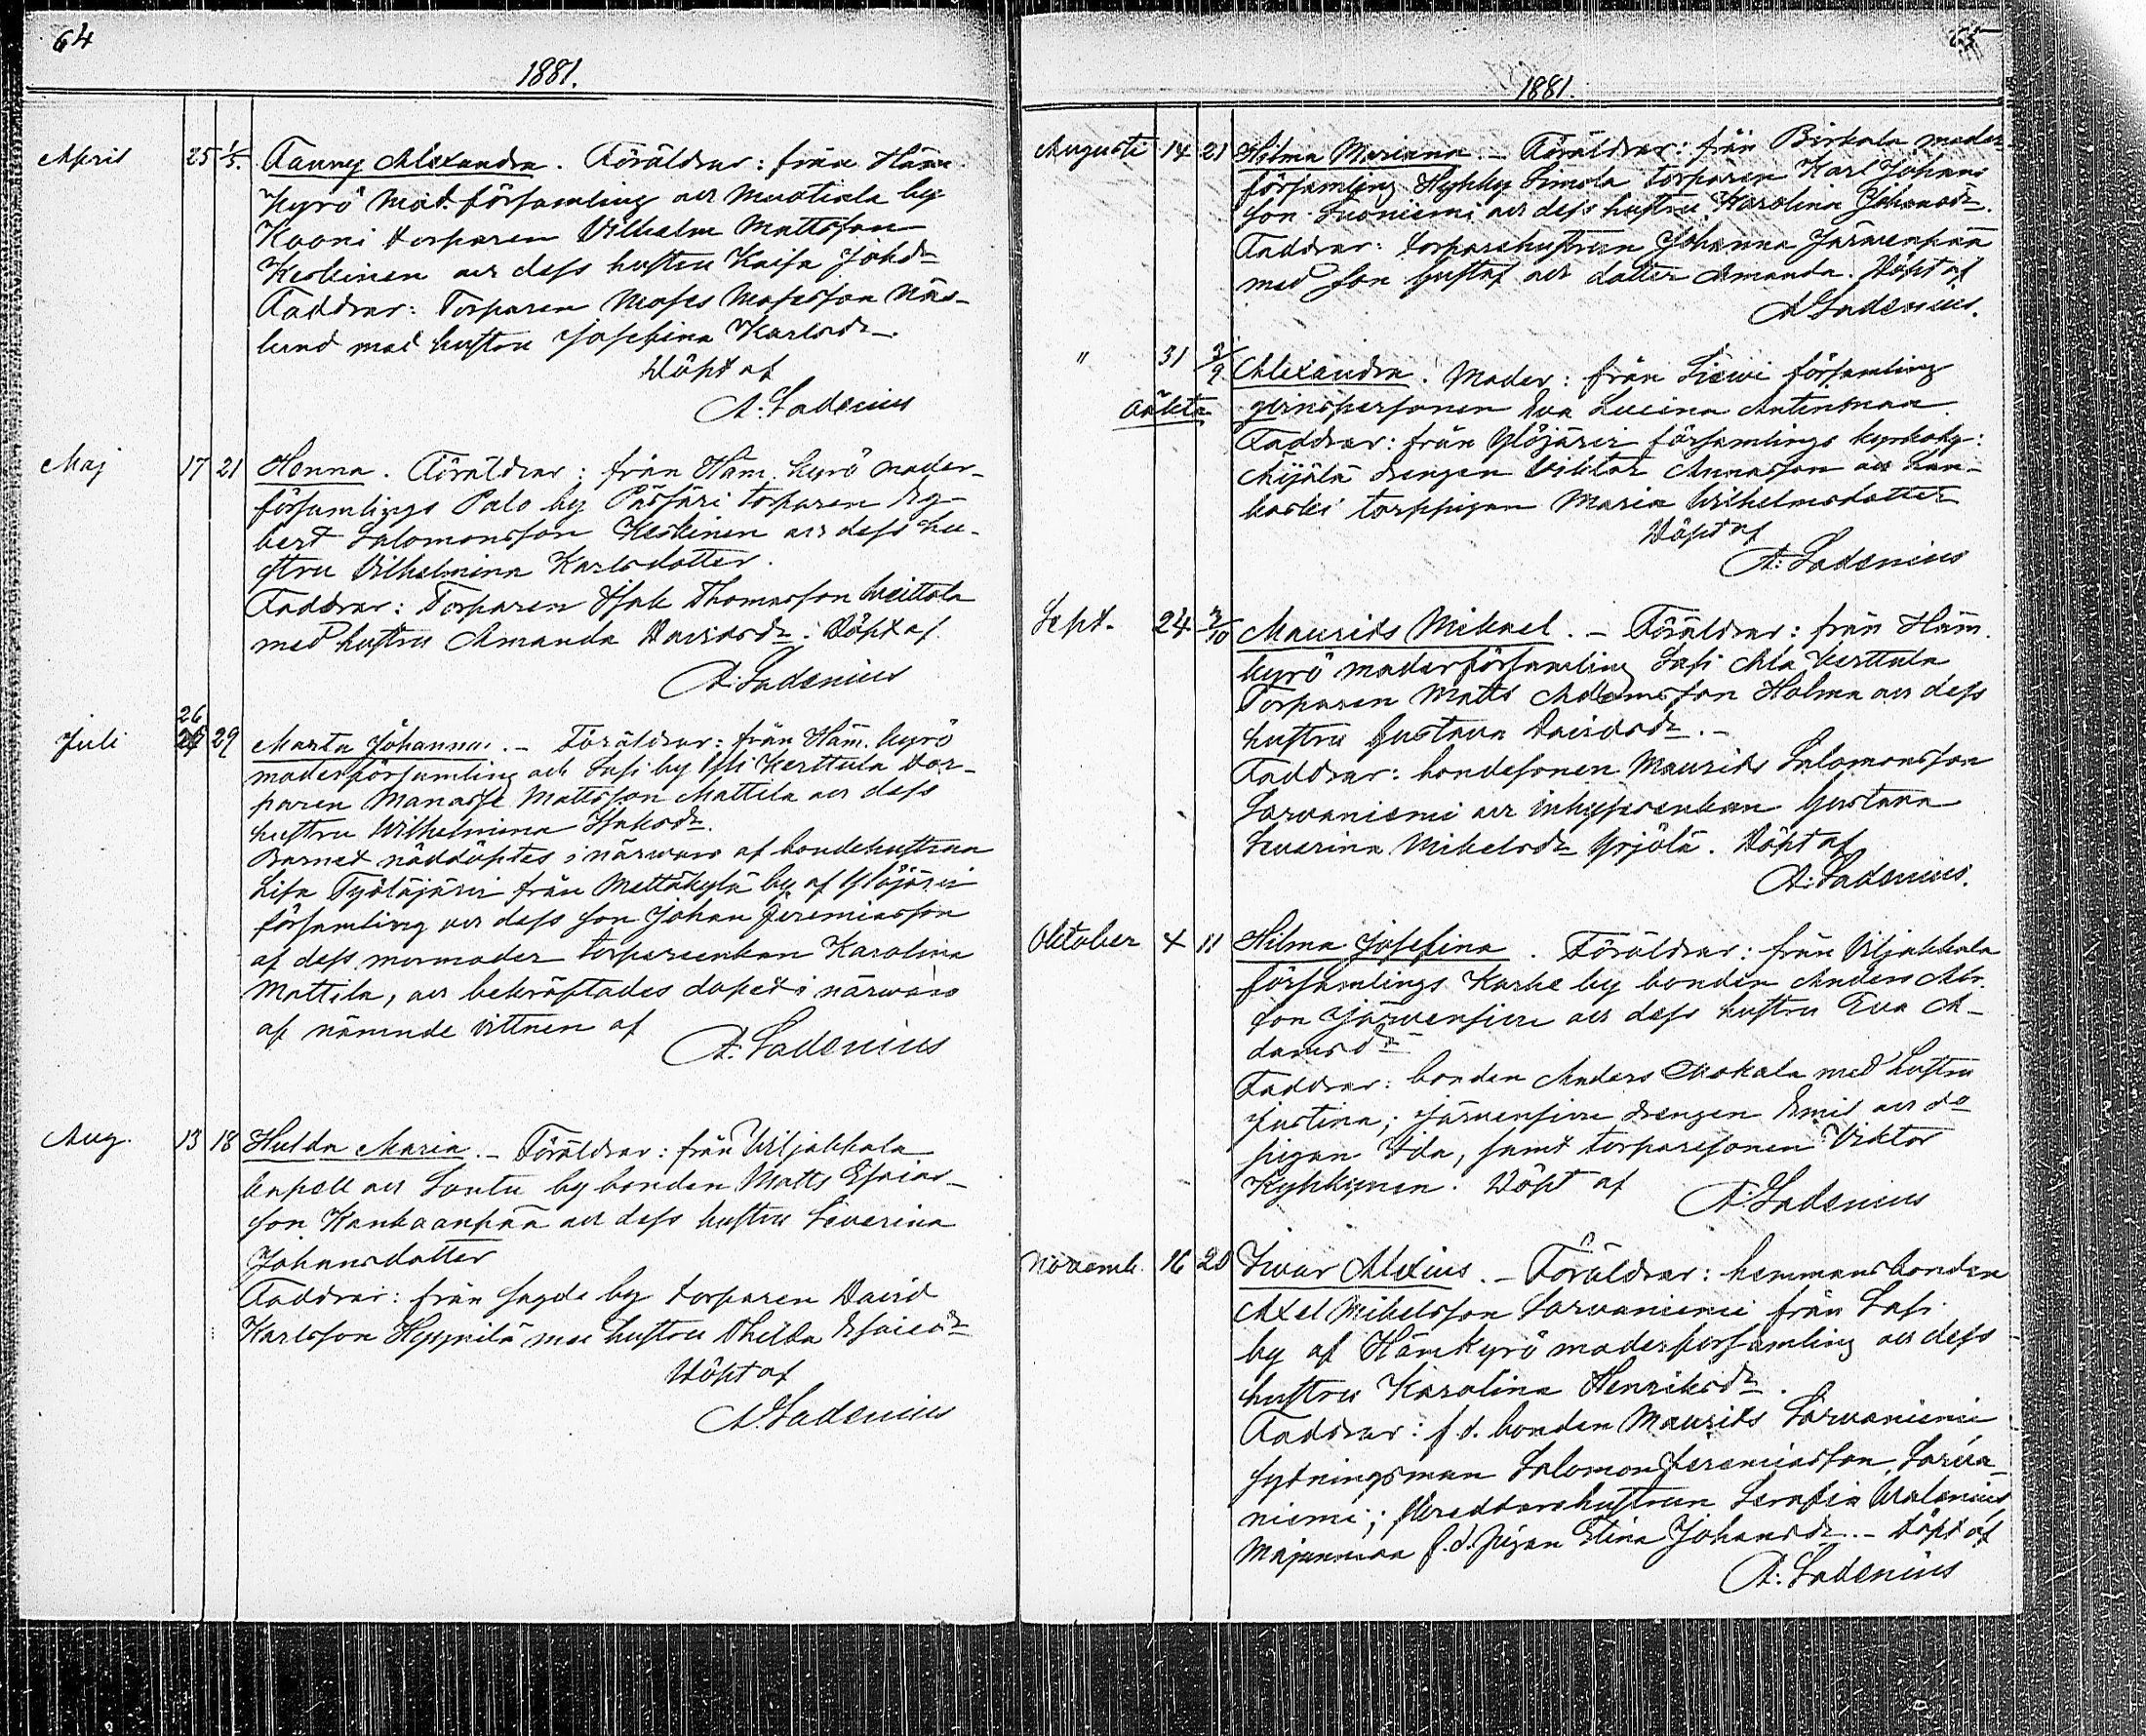 64
1881.
April 25 1/5. Fanny Alexandra. Föräldrar: från Häm.
Kyrö Mod. församling och Muotiala by
Kooni torparen Vilhelm Mattsson
Keskinen och dess hustru Kaisa Johdr
Faddrar: Torparen Moses Mosesson Näs-
lund med hustru Josefina Karlsdr.
Döpt af
A: Ladenius
Maj 17 21 Henna. Föräldrar: från Häm. kyrö moder-
församlings Palo by Pässäri torparen Eg-
bert Salomonsson Keskinen och dess hu-
stru Vilhelmina Karlsdotter.
Faddrar: Torparen Isak Thomasson
med hustru Amanda Davidsdr. Döpt af
A: Ladenius
26
Juli 29 Marta Johanna. – Föräldrar: från Häm. kyrö
moderförsamling och Sasi by Yli Kerttula tor-
paren Manasse Mattsson Mattila och dess
hustru Wilhelmina Isaksdr.
Barnet nöddöptes i närwaro af bondehustrun
Lisa Työläjärvi från Mettäkylä by af Ylöjärvi
församling och dess son Johan Jeremiasson
af dess mormoder torpareenkan Karolina
Mattila, och bekräftades dopet i närwaro
af nämnde vittnen af
A: Ladenius
Aug. 13 18 Hulda Maria. – Föräldrar: från Wiljakkala
kapell och Sontu by bonden Matts Esaias-
son Kankaanpää och dess hustru Severina
Johansdotter
Faddrar: från by torparen David
Karlsson Hyynilä med hustru Thilda Esaiasdr
Döpt af
A. Ladenius
65
1881.
Augusti 14 21 Hilma Mariana. – Föräldrar: från Birkala moder-
församling Hyhky Simola torparen Karl Johans
son Tuoniemi och dess hustru Karolina Johansdr.
Faddrar: torparehustrun Johanna Järwenpää
med son Gustaf och dotter Amanda. Döpt af
A Ladenius.
" 31 3/9 Alexandra. Moder: från Siewi församling
Oäkta qvinspersonen Eva Lucina
Faddrar: från Ylöjärvi församlings kyrkoby:
Mijälä drengen Viktor Annasson och Lan-
koski torppigan Maria Wilhelmsdotter
Döpt af
A: Ladenius
Sept. 24 2/10 Maurits Mikael. – Föräldrar: från Häm.
kyrö moderförsamling Sasi Ala Kerttula
Torparen Matts Adamsson Holma och dess
hustru Gustava Davidsdr. –
Faddrar: bondesonen Maurits Salomonsson
Sarvaniemi och inhysesenkan Gustava
Severina Mikelsdr Yrjölä. Döpt af
A: Ladenius.
Oktober 4 11 Hilma Josefina. Föräldrar: från Viljakkala
församlings Karhe by bonden Anders
son Järvensivu och dess hustru Eva A-
damsdr
Faddrar: bonden Anders Mokala med hustru
Justina; Järvensivu drengen Emil och do
pigan Ida, samt torparesonen Viktor
Kyhkynen. Döpt af
A: Ladenius
Novemb. 16 20 Ivar Alexius. – Föräldrar: hemmansbonden
Axel Mikelsson Sarvaniemi från Sasi
by af Hämkyrö moderförsamling och dess
hustru Karolina Henriksdr.
Faddrar: f.d. bonden Maurits Sarvaniemi
sytningsman Salomon Jeremiasson Sarva-
niemi; hustrun Serafia
f.d. pigan Stina Johansdr. – Döpt af
A: Ladenius